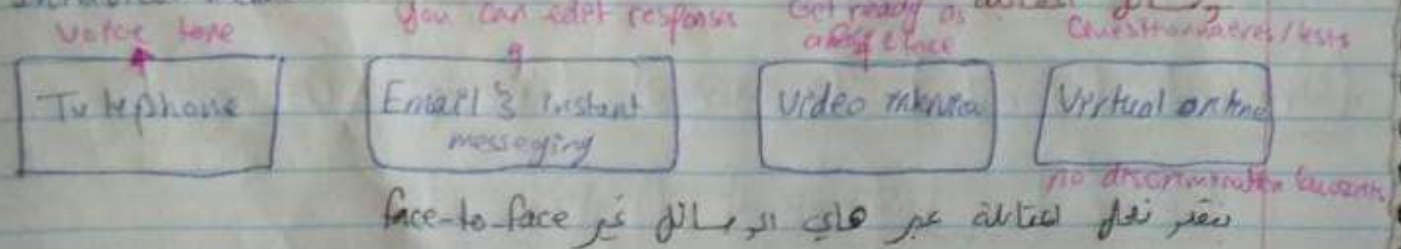 وسائل
voice tone
you can edit response
Get ready as
any place
Questionnaires/tests
Telephone
Email & instant
messeging
video
Virtual online
no discrimination
بنقدر نعمل المقابلة عبر هاي الوسائل غير face-to-face